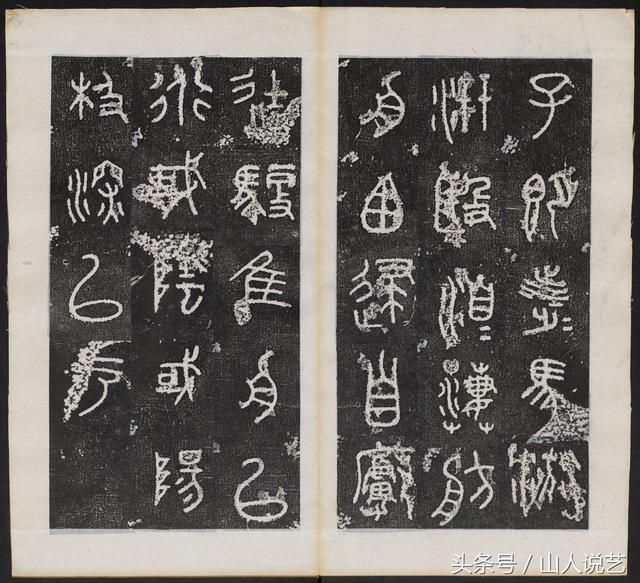 子即涉馬流
汧殹洎=淒=舫
舟囪逮自廓
徒馭隹舟以
行或陰或陽
极深以戶
头条号 / 山人说艺